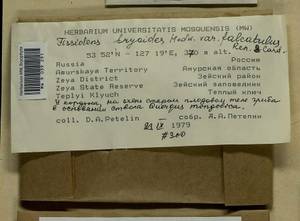 HERBARIUM UNIVERSITATIS MOSQUENSIS (MW)
Fissidens bryoides Hedw. var. calcatulus
Ren. & Card.
53 52'N - 127 19'E, 370 m alt.
Russia Россия
Amurskaya Territory Амурская область
Zeya District Зейский район
Zeya State Reserve Зейский заповедник
Teplyi Klyuch Теплый ключ
У кордона, на старом плодовом теле гриба
в основании ствола Quercus mongolica.
coll. D.A.Petelin собр. Д.А.Петелин
21 IX 1979
#300